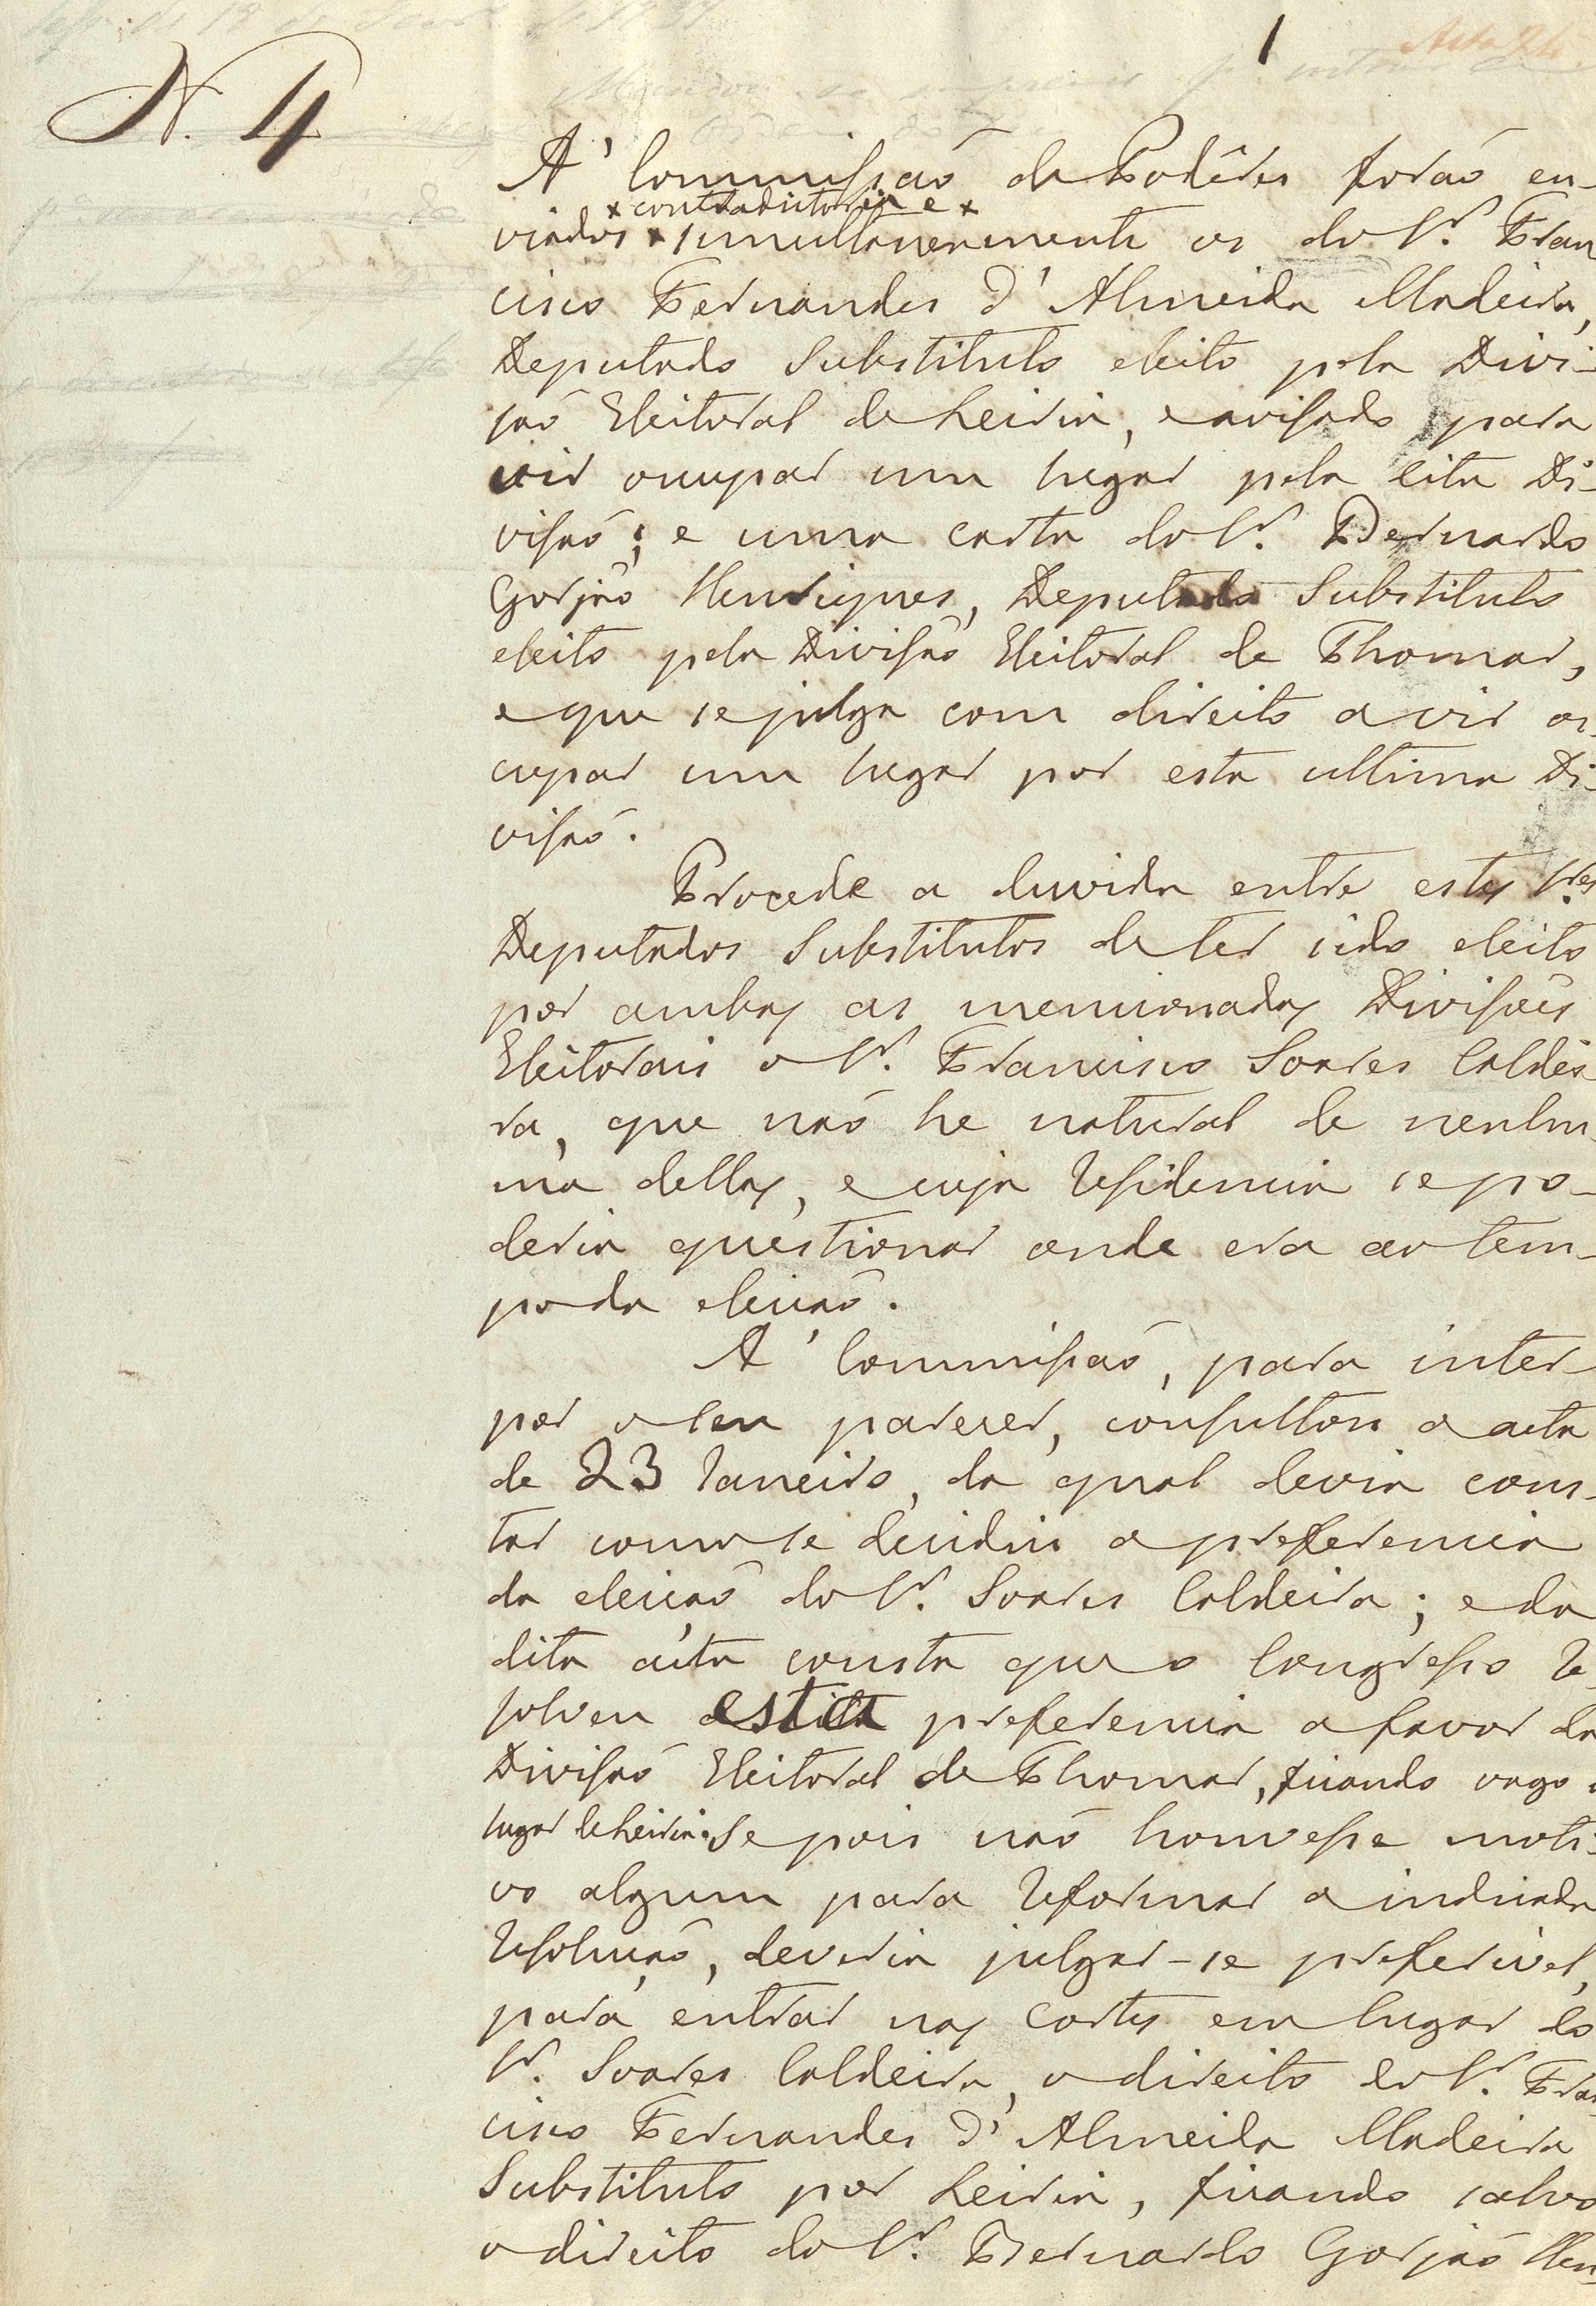 1
N. 4
A' Commissaõ de Podêres foraõ en-
× contradictoria e ×
viados × simultaneamente os do Sr. Fran
cisco Fernandes d'Almeida Madeira,
Deputado Substituto eleito pela Divi-
saõ Eleitoral de Leiria, e avisado para
vir ocupar um lugar pela dita Di-
visaõ; e uma carta do Sr. Bernardo
Gorjaõ Henriques, Deputado Substituto
eleito pela Divisaõ Eleitoral de Thomar,
e que se julga com direito a vir oc-
cupar um lugar por esta ultima Di-
visaõ.
Procede a duvida entre estes Sres
Deputados Substitutos de ter sido eleito
por ambas as mencionadas Divisões
Eleitorais o Sr. Francisco Soares Caldei
ra, que naõ he natural de nenhu
ma dellas, e cuja residencia se po-
deria questionar onde era ao tem-
po da eleiçaõ.
A' Commissaõ, para inter-
por o seu parecer, consultou a acta
de 23 Janeiro, da qual devia cons-
tar como se decidiu a preferencia
da eleiçaõ do Sr. Soares Caldeira; e da
dita acta consta que o Congresso re-
solveu esta preferencia a favor da
Divisaõ Eleitoral de Thomar, ficando vago o
lugar de Leiria. Se pois naõ houvesse moti-
vo algum para reformar a indicada
resoluçaõ, deveria julgar-se preferivel,
para entrar nas Cortes em lugar do
Sr. Soares Caldeira, o direito do Sr. Fran-
cisco Fernandes d'Almeida Madeira
Substituto por Leiria, ficando salvo
o direito do Sr. Bernardo Gorjaõ Hen-